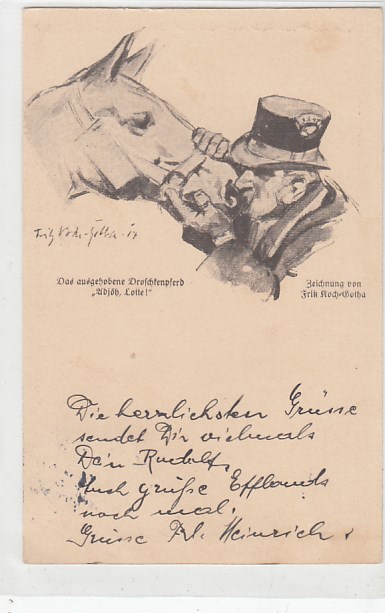 Fritz Koch-Gotha. 14
Das ausgehobene Droschkenpferd
„Adjöh, Lotte!“
Zeichnung von
Fritz Koch-Gotha
Die herzlichsten Grüsse
sendet Dir vielmals
Dein Rudolf,
Auch grüße
noch mal.
Grüsse Frl. Heinrich.